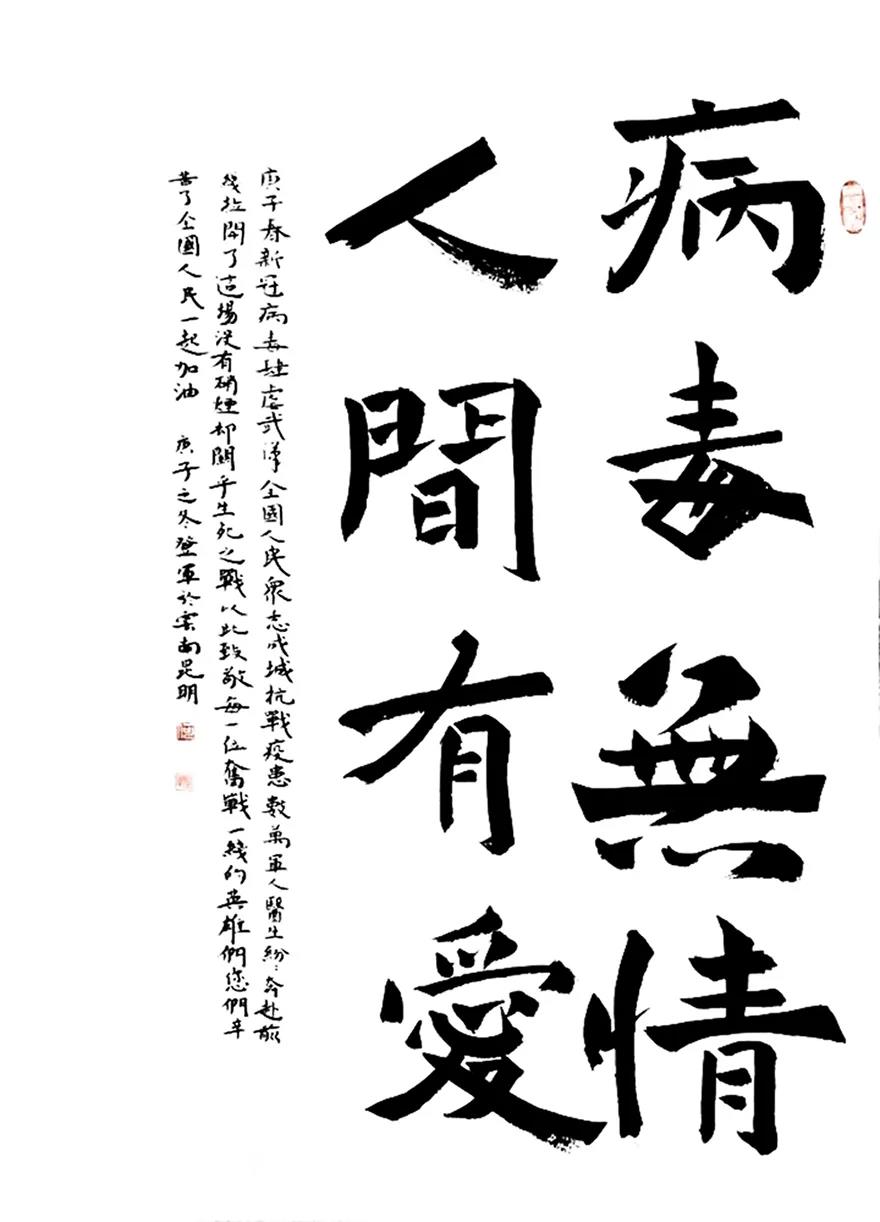 病毒無情
人間有愛
庚子春新冠病毒肆虐武漢全國人民衆志成城抗戰疫患數萬軍人醫生紛〻奔赴前
綫拉開了這場没有硝煙却關乎生死之戰以此致敬每一位奮戰一綫的英雄們您們辛
苦了全國人民一起加油 庚子之冬登軍於雲南昆明